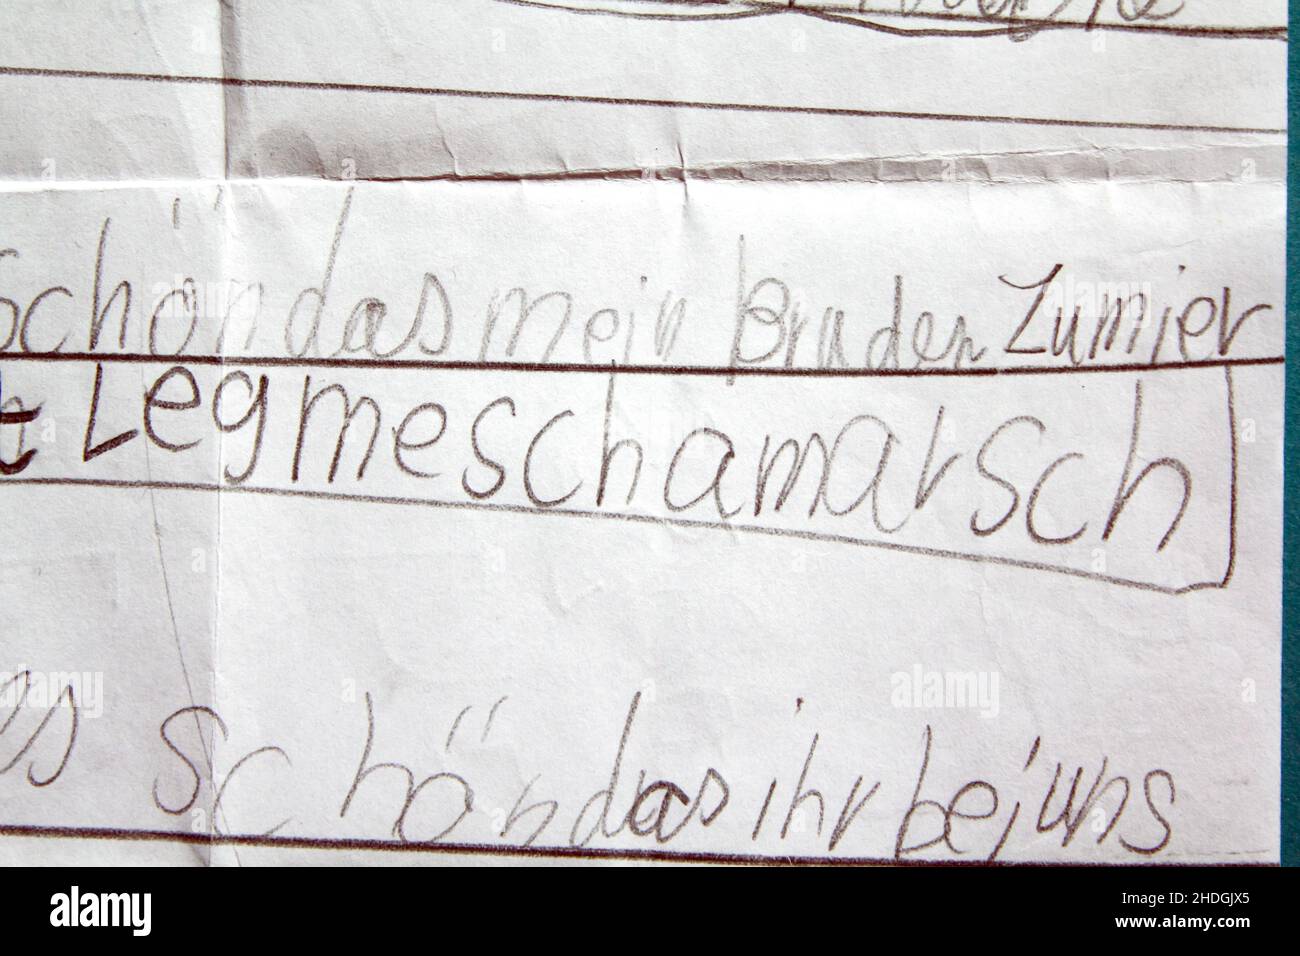 schön das mein Bruder Zumier
Legmeschamarsch
es schön das ihr bei uns
alamy
Image ID: 2HDGJX5
www.alamy.com